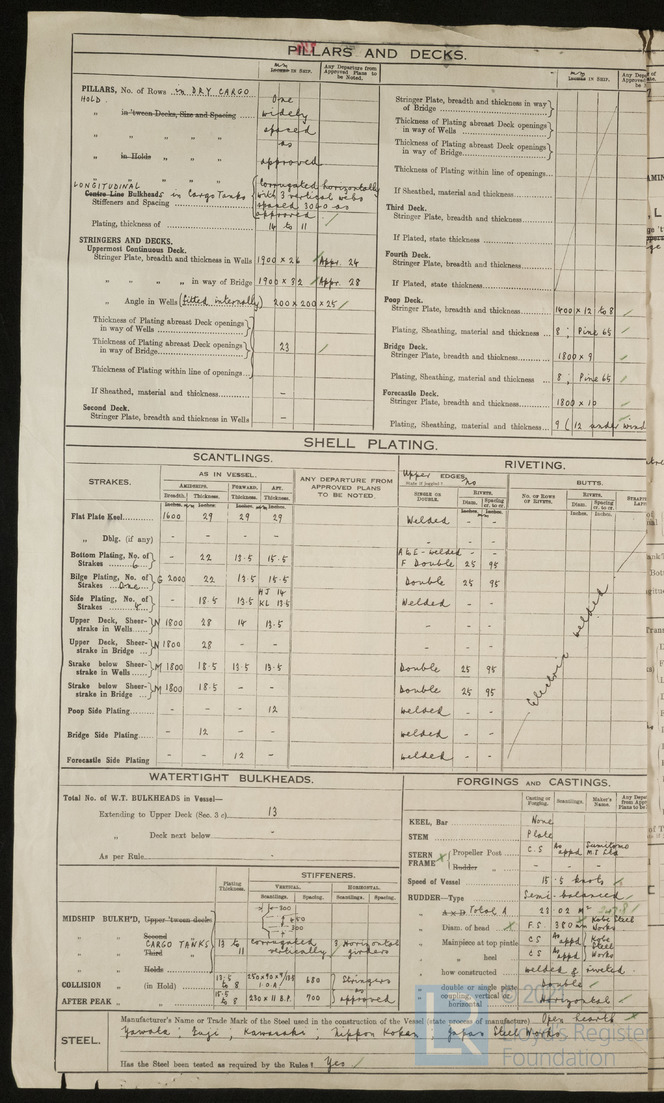 PILLARS AND DECKS.
m/m Inches IN SHIP.
Any Departure from Approved Plans to be Noted.
PILLARS, No. of Rows in DRY CARGO HOLD
One
„ in 'tween Decks, Size and Spacing
widely
„ „ „ „
spaced
as
„ in Holds „ „
approved
LONGITUDINAL
Centre Line Bulkheads in Cargo Tanks
Stiffeners and Spacing
Corrugated horizontally with 3 vertical webs spaced 3060 as approved
Plating, thickness of
14 to 11
STRINGERS AND DECKS.
Uppermost Continuous Deck.
Stringer Plate, breadth and thickness in Wells 1900 x 26 Appr. 24
„ „ „ „ in way of Bridge 1900 x 32 Appr. 28
„ Angle in Wells (fitted internally) 200 x 200 x 25
Thickness of Plating abreast Deck openings in way of Wells
Thickness of Plating abreast Deck openings in way of Bridge
23
Thickness of Plating within line of openings
If Sheathed, material and thickness -
Second Deck.
Stringer Plate, breadth and thickness in Wells -
m/m Inches IN SHIP.
Stringer Plate, breadth and thickness in way of Bridge
Thickness of Plating abreast Deck openings in way of Wells
Thickness of Plating abreast Deck openings in way of Bridge
Thickness of Plating within line of openings
If Sheathed, material and thickness
Third Deck.
Stringer Plate, breadth and thickness
If Plated, state thickness
Fourth Deck.
Stringer Plate, breadth and thickness
If Plated, state thickness
Poop Deck.
Stringer Plate, breadth and thickness 1400 x 12 to 8
Plating, Sheathing, material and thickness 8 ; Pine 65
Bridge Deck.
Stringer Plate, breadth and thickness 1800 x 9
Plating, Sheathing, material and thickness 8 ; Pine 65
Forecastle Deck.
Stringer Plate, breadth and thickness 1800 x 10
Plating, Sheathing, material and thickness 9 (12 under wind
SHELL PLATING.
SCANTLINGS.
STRAKES.
AS IN VESSEL.
AMIDSHIPS. FORWARD. AFT.
Breadth. Thickness. Thickness. Thickness.
ANY DEPARTURE FROM APPROVED PLANS TO BE NOTED.
RIVETING.
Upper EDGES. no
State if joggled?
SINGLE OR DOUBLE.
RIVETS.
Diam. Spacing cr. to cr.
BUTTS.
NO. OF ROWS OF RIVETS.
RIVETS.
Diam. Spacing cr. to cr.
Inches. Inches.
Flat Plate Keel 1600 29 29 29 Welded - -
„ Dblg. (if any) - - - - - - -
Bottom Plating, No. of Strakes 6 - 22 13.5 15.5 A & E - welded - F Double 25 95
Bilge Plating, No. of Strakes One G 2000 22 13.5 15.5 Double 25 95
Side Plating, No. of Strakes 4 - 18.5 13.5 HJ 14 KL 13.5 Welded - -
Upper Deck, Sheerstrake in Wells N 1800 28 14 13.5 - - -
Upper Deck, Sheerstrake in Bridge N 1800 28 - - - - -
Strake below Sheerstrake in Wells M 1800 18.5 13.5 13.5 Double 25 95
Strake below Sheerstrake in Bridge M 1800 18.5 - - Double 25 95
Poop Side Plating - - - 12 welded - -
Bridge Side Plating - 12 - - welded - -
Forecastle Side Plating - - 12 - welded - -
Electric welded
WATERTIGHT BULKHEADS.
Total No. of W.T. BULKHEADS in Vessel—
Extending to Upper Deck (Sec. 3 c) 13
„ Deck next below -
As per Rule -
Plating Thickness.
STIFFENERS.
VERTICAL. HORIZONTAL.
Scantlings. Spacing. Scantlings. Spacing.
300
450
300
MIDSHIP BULKH'D, Upper 'tween decks
„ Second „
CARGO TANKS 13 to 11 corrugated vertically 3 Horizontal girders
„ Third „
„ Holds
COLLISION „ (in Hold) 13.5 to 8 680 Stringers
AFTER PEAK „ „ 15.5 to 8 230 x 11 B.P. 700 as approved
FORGINGS AND CASTINGS.
Casting or Forging. Scantlings. Maker's Name.
KEEL, Bar None
STEM Plate
STERN FRAME Propeller Post C.S As appd Sumitomo
Rudder „ - - -
Speed of Vessel 15.5 knots
RUDDER—Type Semi-balanced
„ A x D Total A 23.02 M²
„ Diam. of head F.S 380 Kobe Steel Works
„ Mainpiece at top pintle C.S As appd Kobe Steel Works
„ „ heel C.S As appd
„ how constructed welded & riveted
„ double or single plate Double
„ coupling, vertical or horizontal Horizontal
STEEL.
Manufacturer's Name or Trade Mark of the Steel used in the construction of the Vessel (state process of manufacture) Open hearth
Yawata, Fuji, Kawasaki, Nippon Kokan, Japan Steel Works
Has the Steel been tested as required by the Rules? Yes
© 2021
LR
Lloyd's Register
Foundation